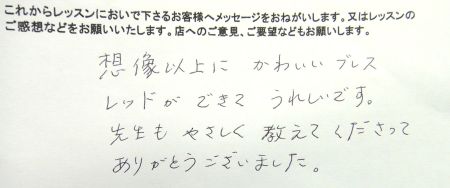 これからレッスンにおいで下さるお客様へメッセージをおねがいします。又はレッスンの
ご感想などをお願いいたします。店へのご意見、ご要望などもお願いします。
想像以上に かわいい ブレス
レッドが できて うれしいです。
先生も やさしく 教えて くださって
ありがとうございました。